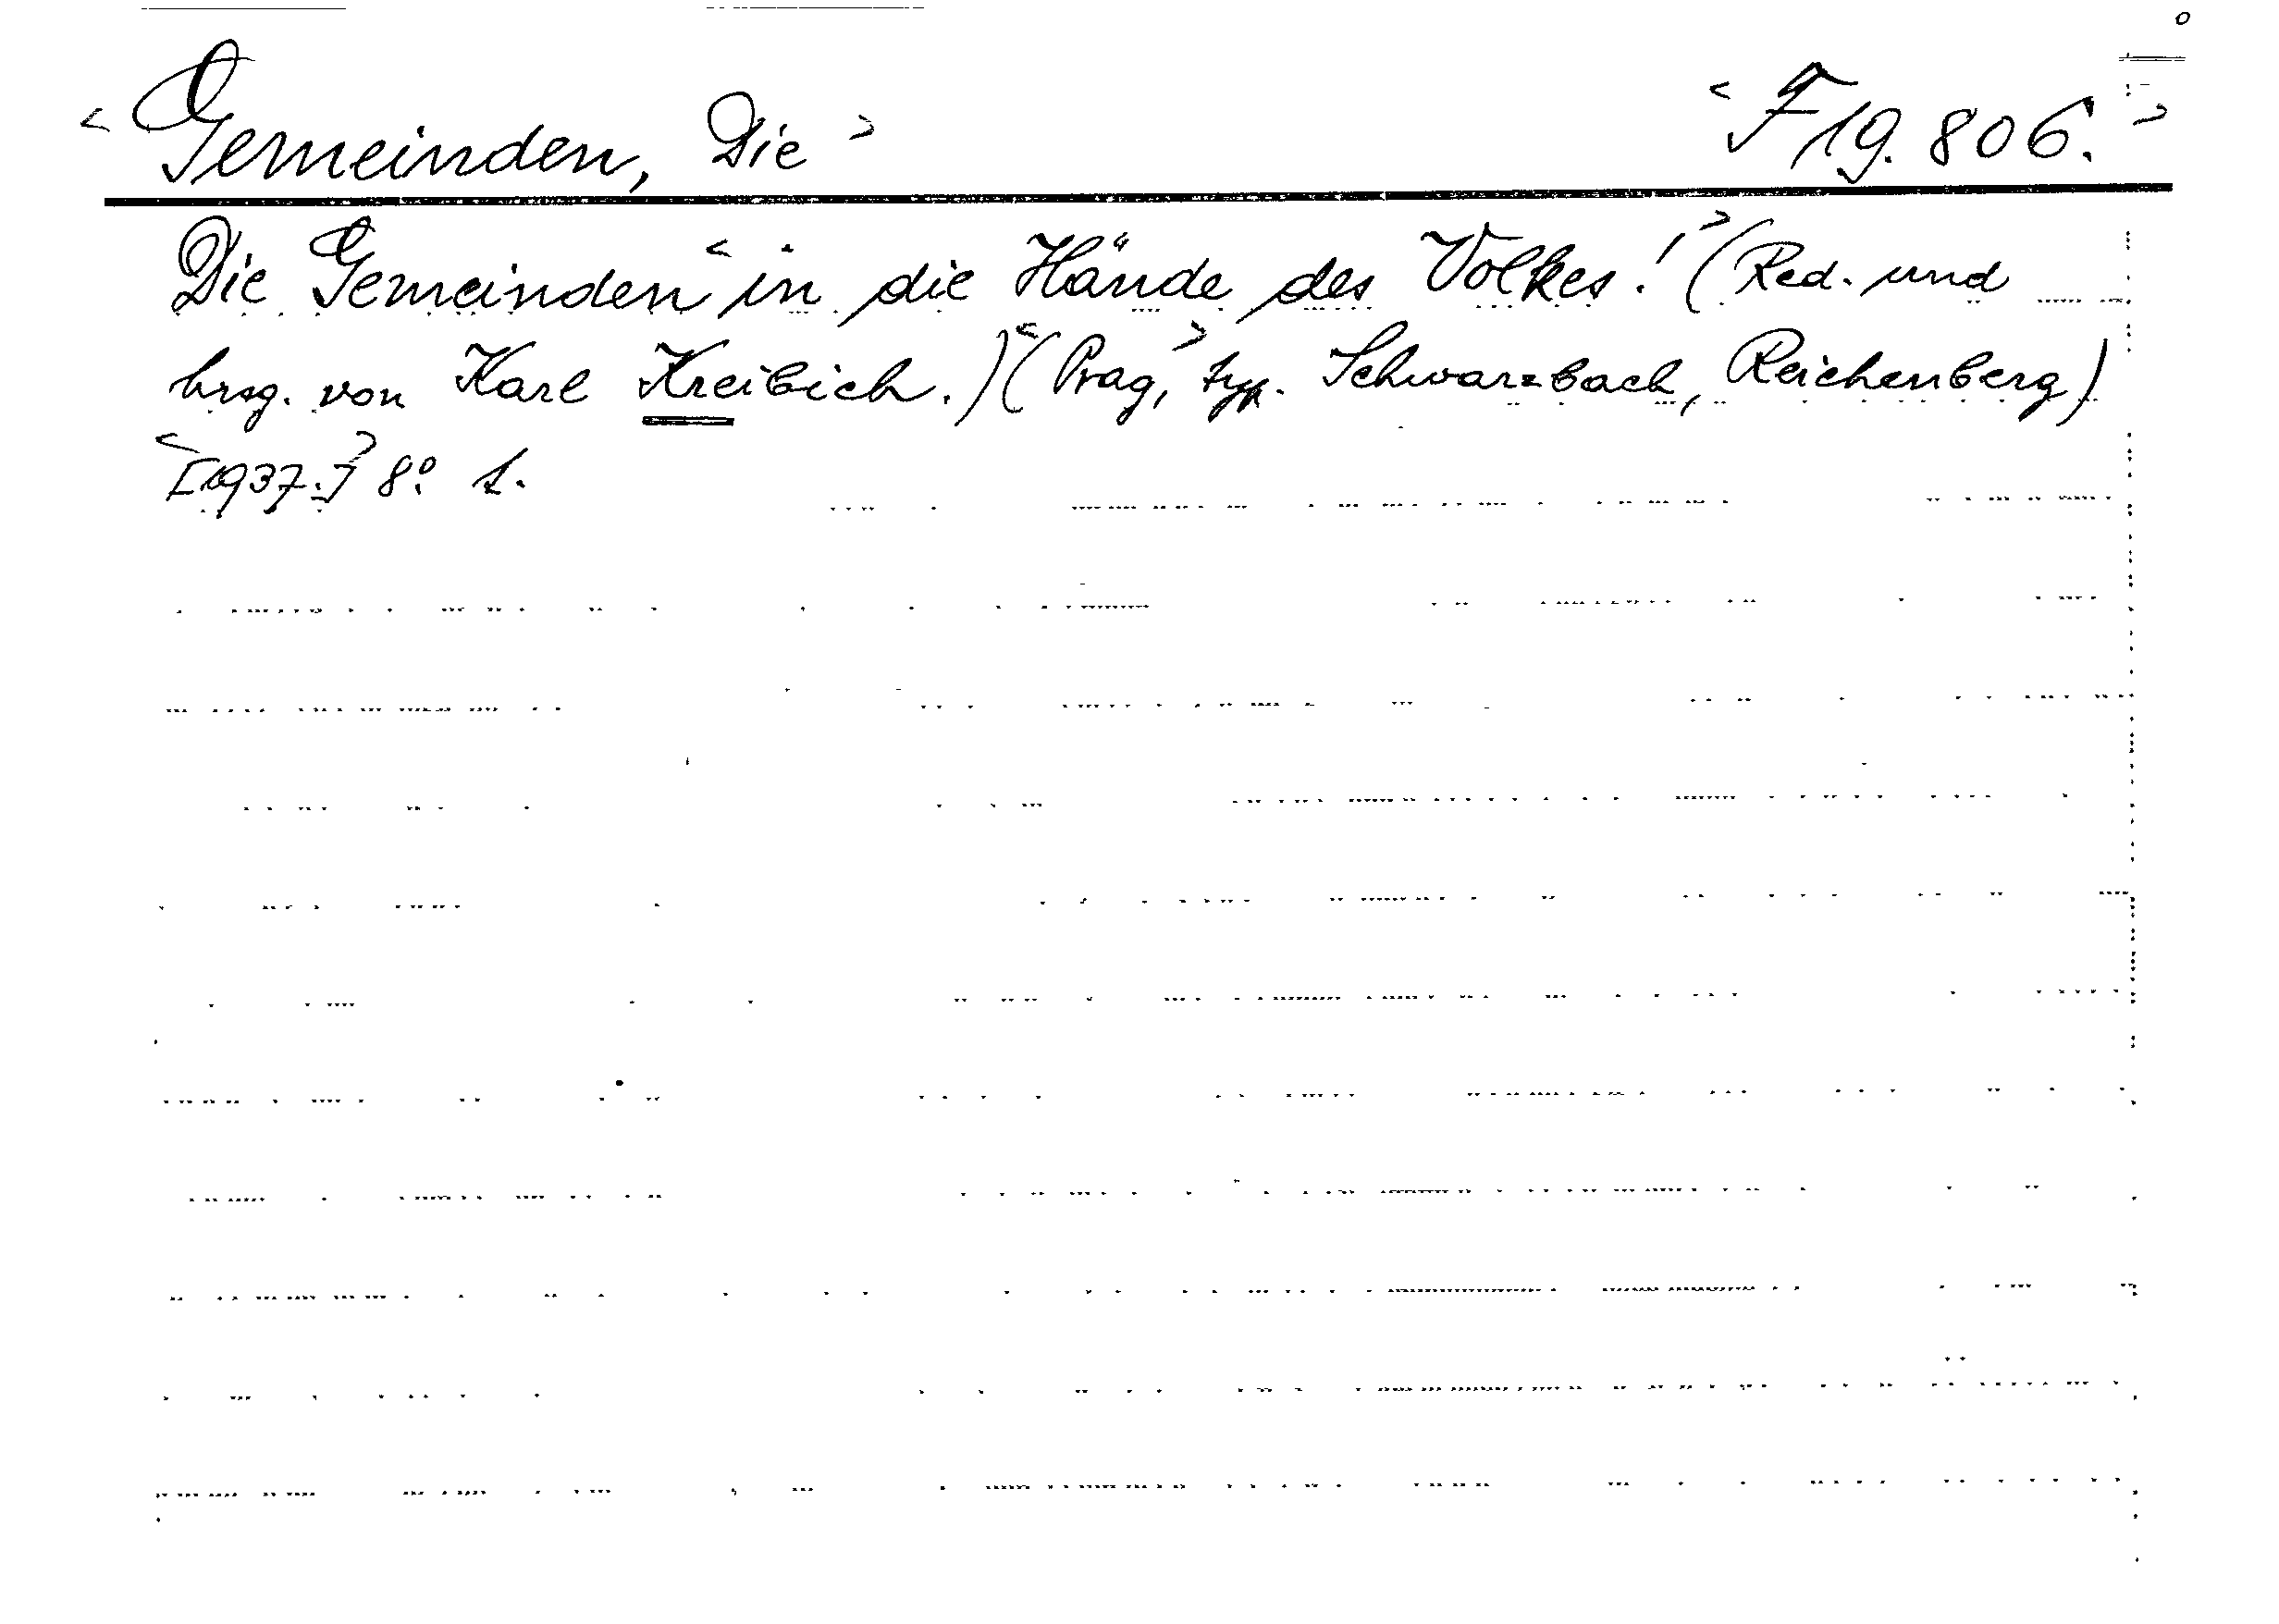 < Gemeinden, Die > < F 19.806. >
Die Gemeinden < in die Hände des Volkes! > (Red. und
hrsg. von Karl Kreibich.) < (Prag, > typ. Schwarzbach, Reichenberg)
< [1937.] > 8° 1.